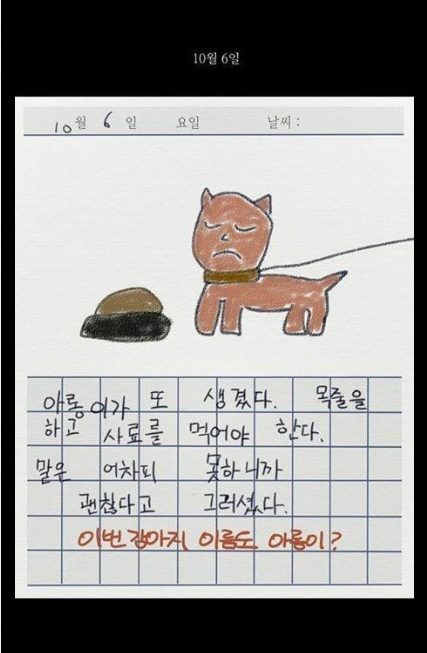 10월 6일
10월 6일 요일 날씨 :
아롱이가 또 생겼다. 목줄을
하고 사료를 먹어야 한다.
말은 어차피 못하니까
괜찮다고 그러셨다.
이번 강아지 이름도 아롱이?